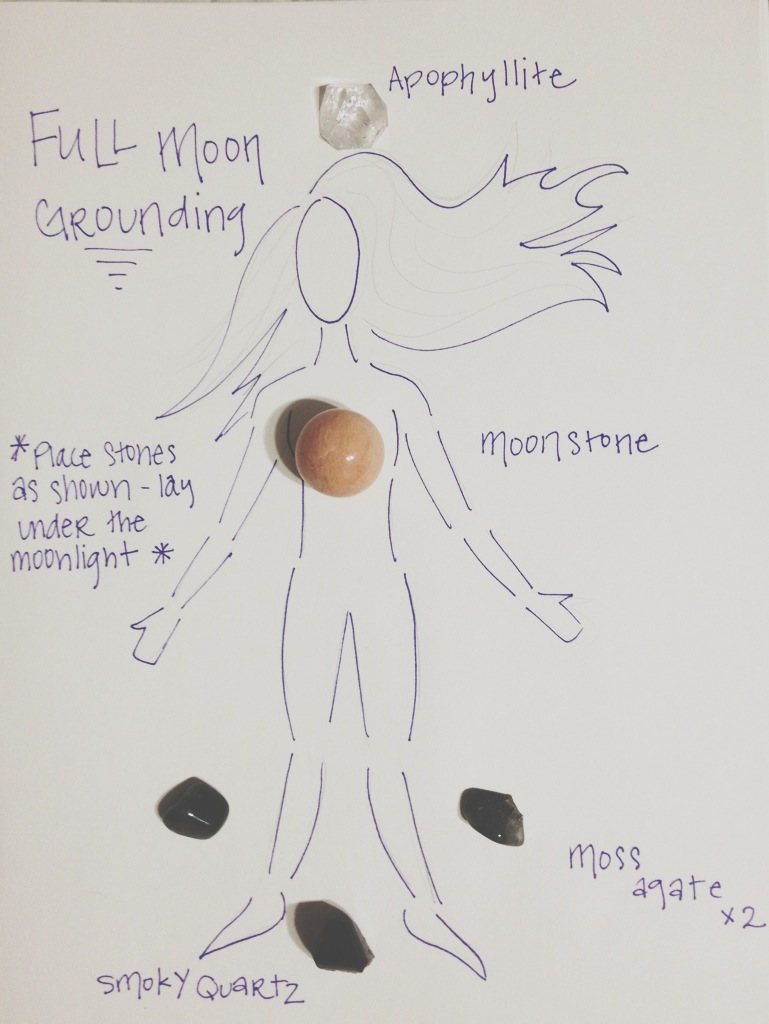 Full Moon
Grounding
Apophyllite
*Place stones
as shown - lay
under the
moonlight *
moonstone
moss
agate
x2
smoky quartz